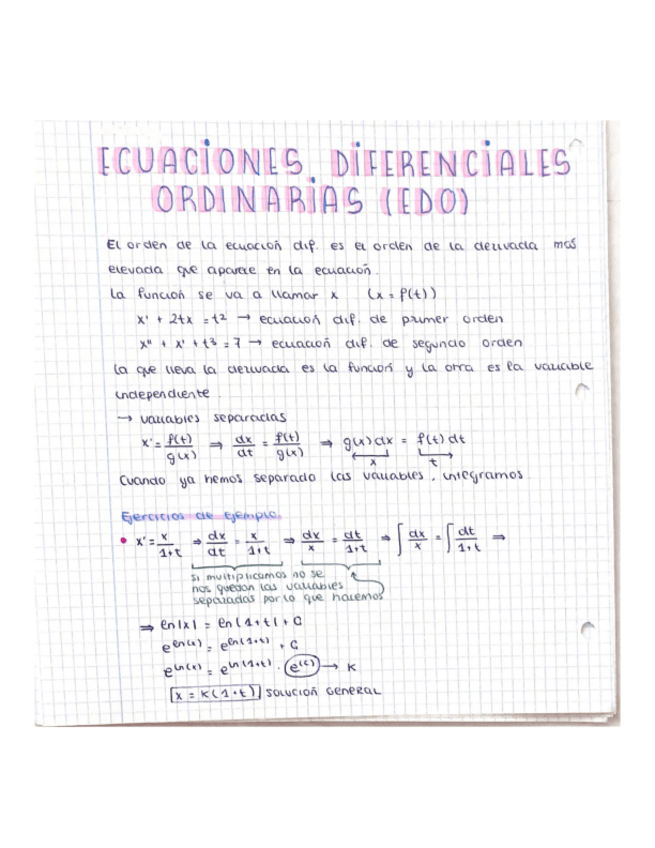 ECUACIONES DIFERENCIALES
ORDINARIAS (EDO)
El orden de la ecuación dif. es el orden de la derivada mas
elevada que aparece en la ecuación.
La función se va a llamar x (x = f(t))
x' + 2tx = t² → ecuación dif. de primer orden
x'' + x' + t³ = 7 → ecuación dif. de segundo orden
La que lleva la derivada es la función y la otra es la variable
independiente.
→ variables separadas
x' = f(t)/g(x) ⇒ dx/dt = f(t)/g(x) ⇒ g(x)dx = f(t)dt
x t
Cuando ya hemos separado las variables, integramos
Ejercicios de Ejemplo.
• x' = x/1+t ⇒ dx/dt = x/1+t ⇒ dx/x = dt/1+t ⇒ ∫ dx/x = ∫ dt/1+t ⇒
si multiplicamos no se
nos quedan las variables
separadas por lo que hacemos
⇒ ln|x| = ln|1+t| + C
e^ln(x) = e^ln(1+t) + C
e^ln(x) = e^ln(1+t) · e^(c) → K
x = K(1+t) SOLUCIÓN GENERAL